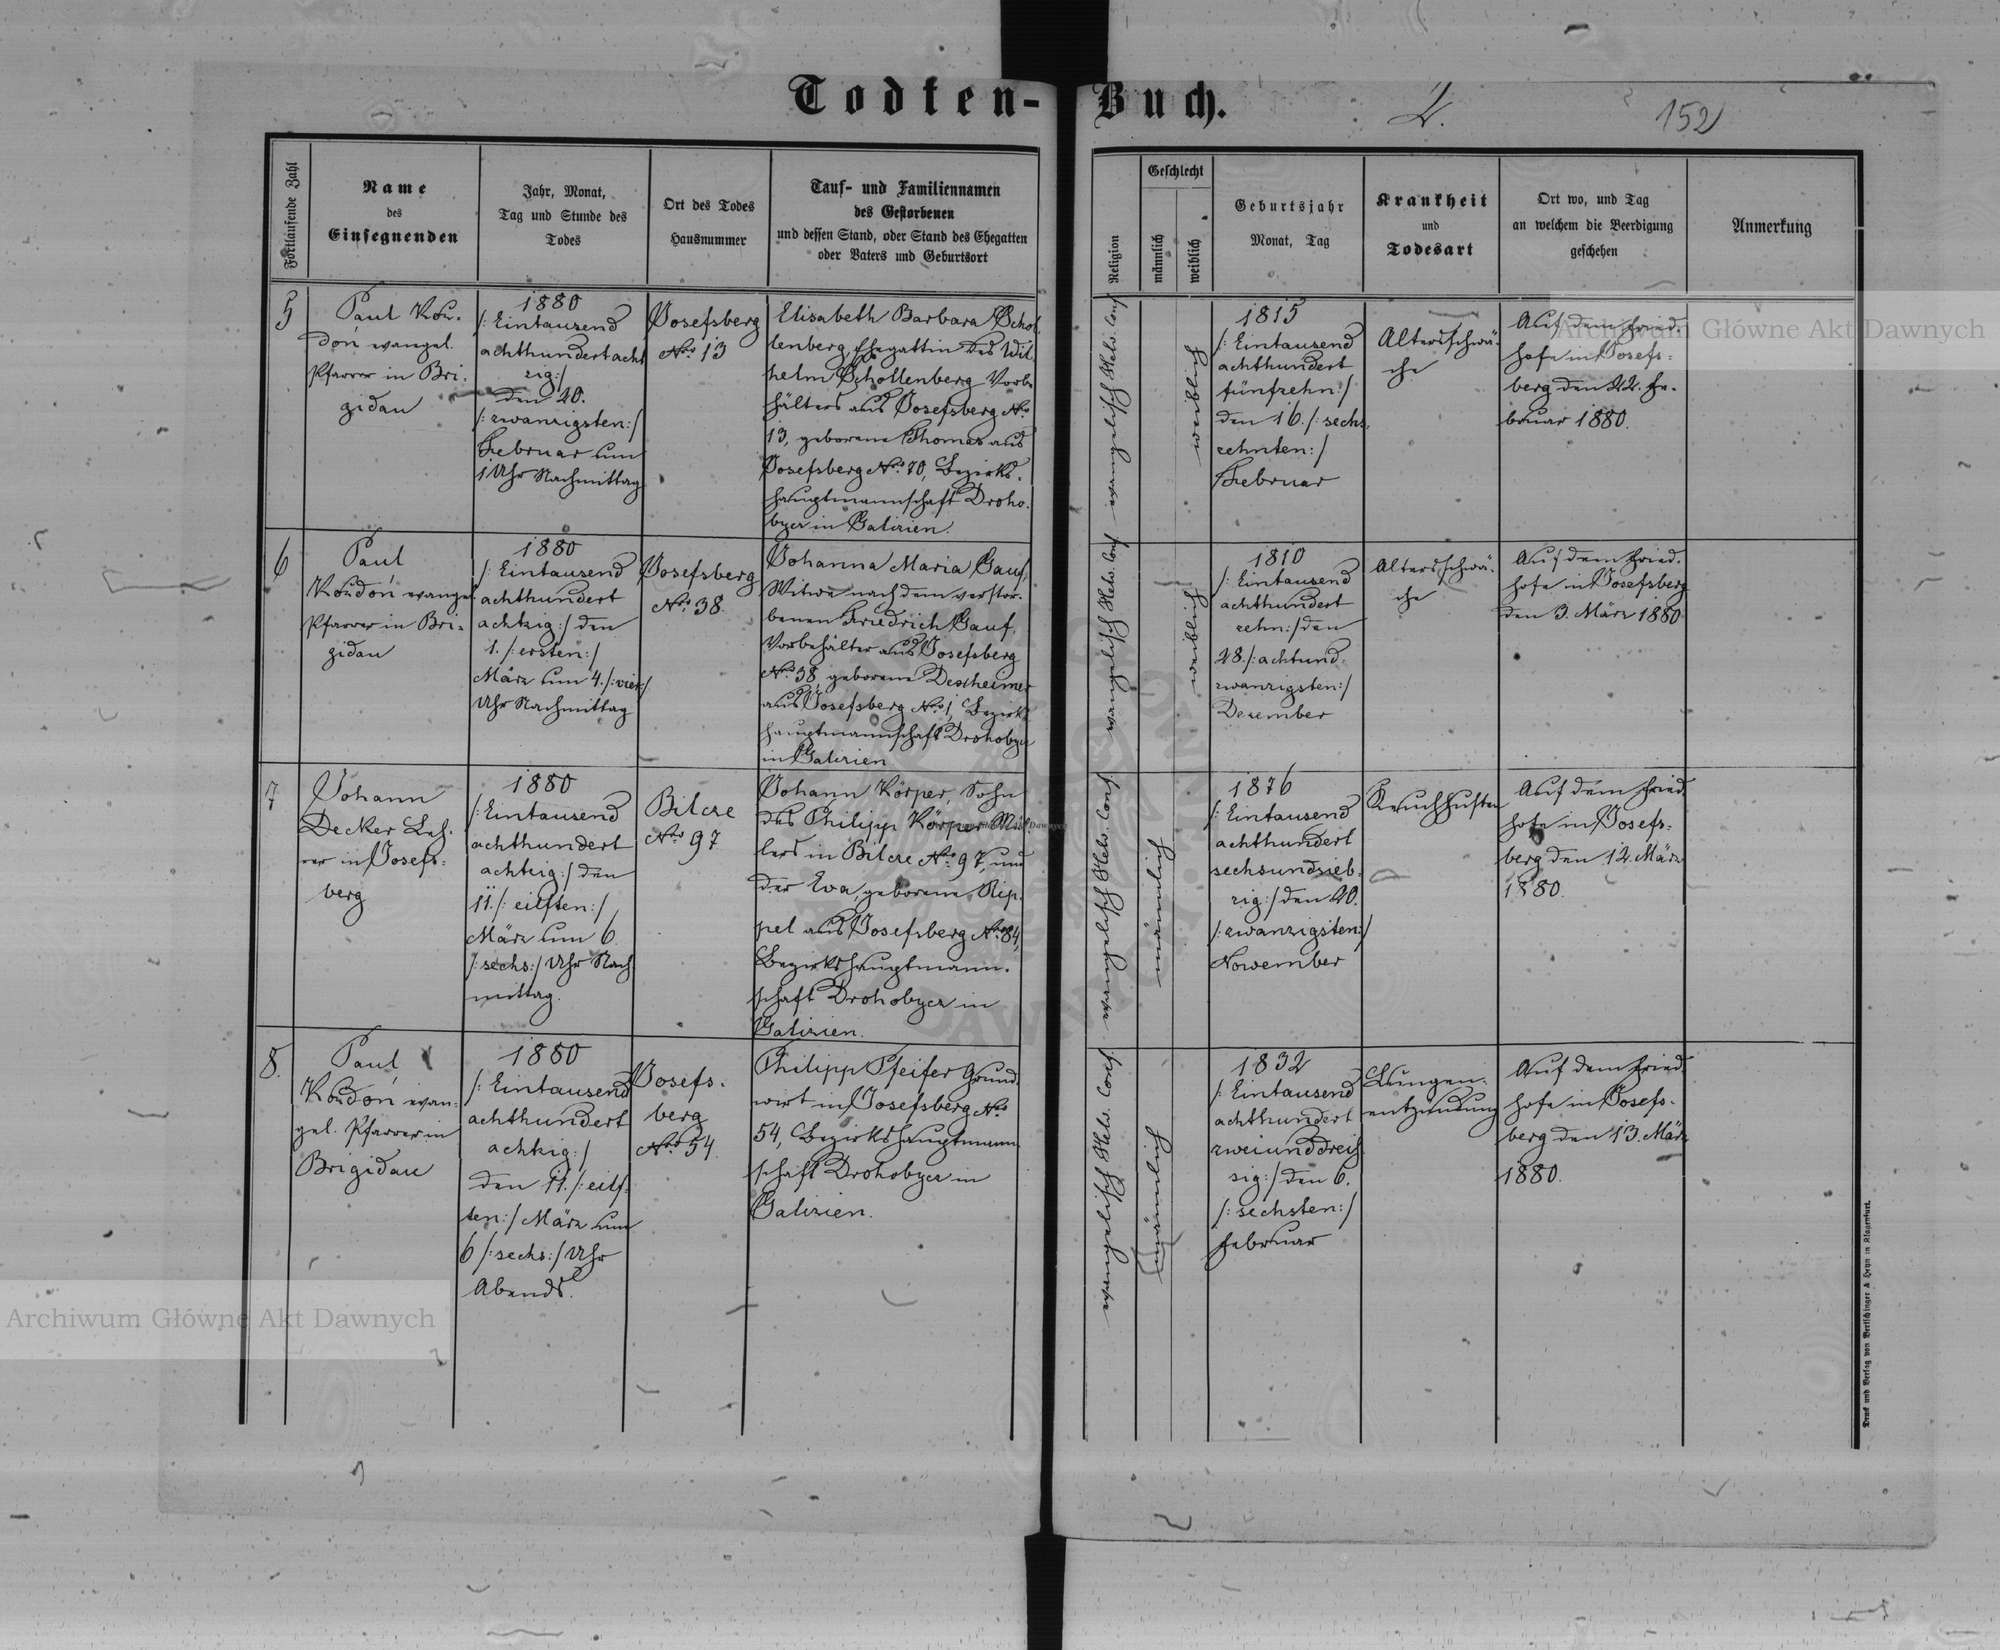 Todten-Buch.
2.
152
Fortlaufende Zahl
Name
des
Einsegnenden
Jahr, Monat,
Tag und Stunde des
Todes
Ort des Todes
Hausnummer
Tauf- und Familiennamen
des Gestorbenen
und dessen Stand, oder Stand des Ehegatten
oder Vaters und Geburtsort
Religion
Geschlecht
männlich
weiblich
Geburtsjahr
Monat, Tag
Krankheit
und
Todesart
Ort wo, und Tag
an welchem die Beerdigung
geschehen
Anmerkung
5
Paul Kou-
don evangel.
Pfarrer in Bri-
gidau
1880
/: Eintausend
achthundertacht
zig:/
den 20.
/: zwanzigsten:/
Februar um
1 Uhr Nachmittag
Josefsberg
Nro 13
Elisabeth Barbara Schol
lenberg, Ehegattin des Wil
helm Schollenberg Vorbe
hälters aus Josefsberg No
13, geborene Thomas aus
Josefsberg No. 70, Bezirks-
hauptmannschaft Droho-
bycz in Galizien.
evangelisch Helv. Conf
weiblich
1815
/: Eintausend
achthundert
fünfzehn:/
den 16. /: sech-
zehnten:/
Februar
Altersschwä-
che
Auf dem Fried-
hofe in Josefs-
berg den 22. Fe-
bruar 1880.
6
Paul
Koudon evangel
Pfarrer in Bri-
gidau
1880
/: Eintausend
achthundert
achtzig:/ den
1. /: ersten:/
März um 4. /: vier:/
Uhr Nachmittag
Josefsberg
Nro. 38.
Johanna Maria Gauf,
Witwe nach dem verstor-
benen Friedrich Gauf,
Vorbehälter aus Josefsberg
No. 38, geborene Dexheimer
aus Josefsberg No 1, Bezirks
hauptmannschaft Drohobycz
in Galizien
evangelisch Helv. Conf
weiblich
1810
/: Eintausend
achthundert
zehn:/ den
28. /: achtund-
zwanzigsten:/
Dezember
Altersschwä-
che
Auf dem Fried-
hofe in Josefsberg
den 3. März 1880
7
Johann
Decker Leh-
rer in Josefs-
berg
1880
/: Eintausend
achthundert
achtzig:/ den
11. /: eilften:/
März um 6.
/: sechs:/ Uhr Nach
mittag.
Bilcze
Nro 97
Johann Körper, Sohn
des Philipp Körper Mül
lers in Bilcze No. 97, und
der Eva, geborene Rip-
pel aus Josefsberg No 84,
Bezirkshauptmann-
schaft Drohobycz in
Galizien.
evangelisch Helv. Conf.
männlich
1876
/: Eintausend
achthundert
sechsundsieb-
zig:/ den 20.
/: zwanzigsten:/
November
Keuchhusten
Auf dem Fried
hofe in Josefs-
berg den 12. März
1880.
8.
Paul
Koudon evan-
gel. Pfarrer in
Brigidau
1880
/: Eintausend
achthundert
achtzig:/
den 11. /: eilf-
ten:/ März um
6 /: sechs:/ Uhr
Abends.
Josefs-
berg
Nro 54.
Philipp Pfeifer Grund-
wirt in Josefsberg No
54, Bezirkshauptmann-
schaft Drohobycz in
Galizien.
evangelisch Helv. Conf.
männlich
1832
/: Eintausend
achthundert
zweiunddreis
sig:/ den 6.
/: sechsten:/
Februar
Lungen-
entzündung
Auf dem Fried-
hofe in Josefs-
berg den 13. März
1880.
Druck und Verlag von Bertschinger & Heyn in Klagenfurt.
Archiwum Główne Akt Dawnych
Archiwum Główne Akt Dawnych